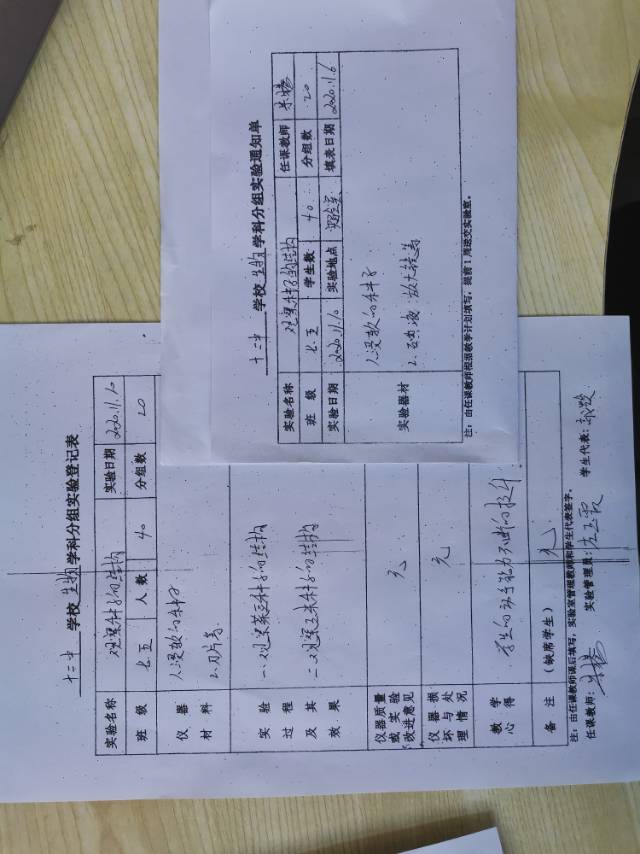 十二中 学校 生物 学科分组实验通知单
实验名称 观察种子的结构 任课教师 朱杨
班 级 七.五 学生数 40 分组数 20
实验日期 2020.11.10 实验地点 实验室 填表日期 2020.11.6
实验器材
1.浸软的种子
2.碘液 放大镜等
注:由任课教师根据教学计划填写,提前1周送交实验室。
十二中 学校 生物 学科分组实验登记表
实验名称 观察种子的结构 实验日期 2020.11.10
班 级 七.五 人 数 40 分组数 20
仪 器
材 料
1.浸软的种子
2.刀片等
实 验
过 程
及 其
效 果
一.观察菜豆种子的结构
二.观察玉米种子的结构
仪器质量
或 实 验
改进意见
无
仪 器 损
坏 与 处
理 情 况
无
教 学
心 得
学生的动手能力不断的提升
备 注 (缺席学生) 无
注:由任课教师课后填写,实验室管理教师和学生代表签字。
任课教师: 朱杨 实验管理员: 学生代表: